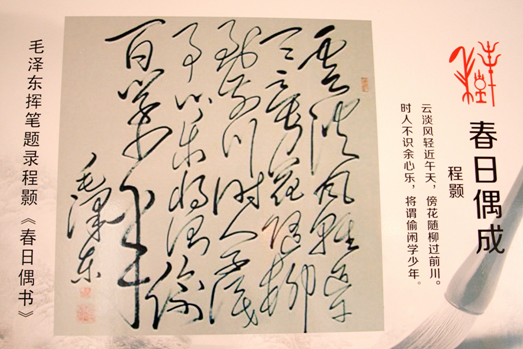 春日偶成
程颢
云淡风轻近午天，傍花随柳过前川。
时人不识余心乐，将谓偷闲学少年。
雲淡风轻近午
天 花随柳
前川时人不识
予心乐将谓偷
闲学少年
毛泽东
毛泽东挥笔题录程颢《春日偶书》